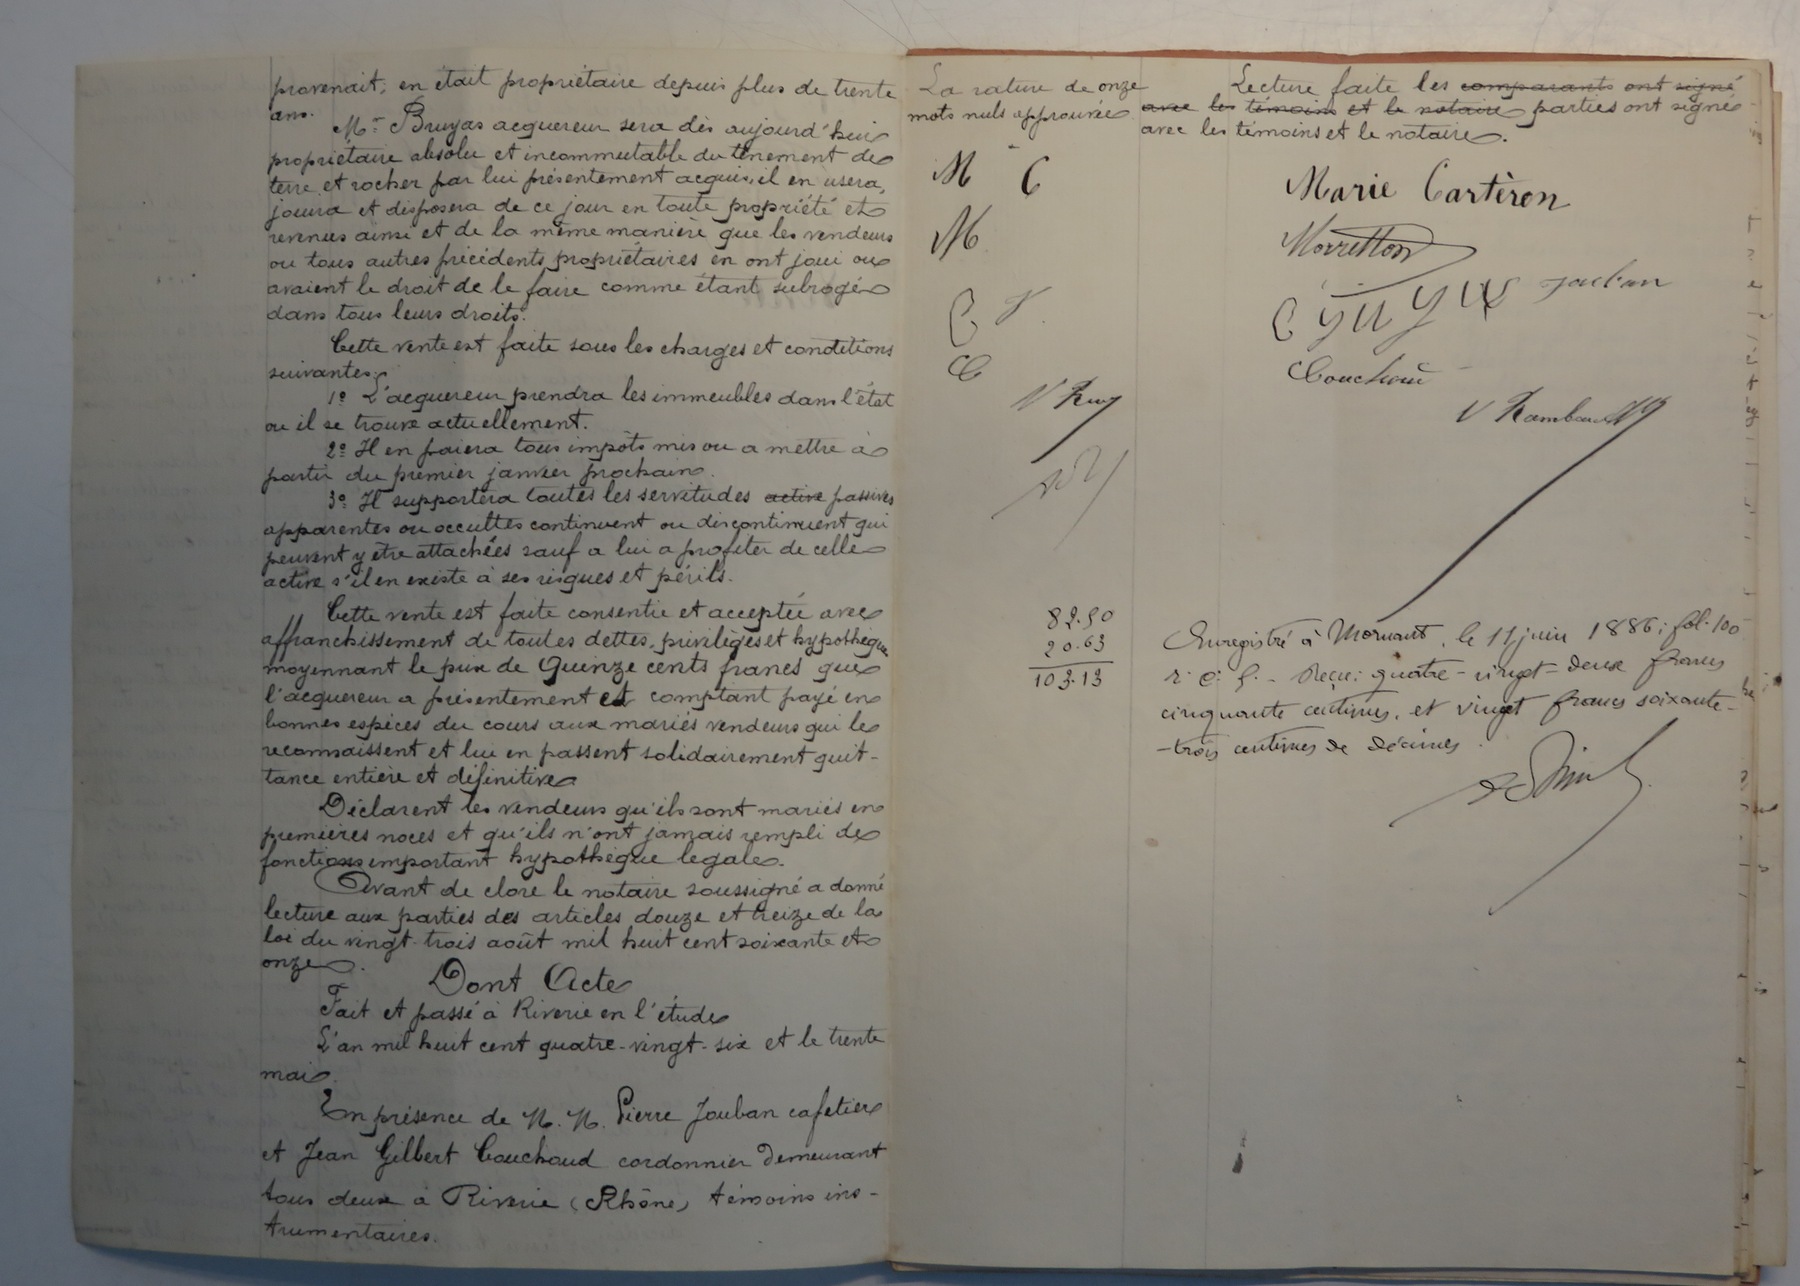 provenait, en était propriétaire depuis plus de trente
ans.
Mr Bruyas acquereur sera dès aujourd'hui
propriétaire absolu et incommutable du tènement de
terre et rocher par lui présentement acquis, il en usera,
jouira et disposera de ce jour en toute propriété et
revenus ainsi et de la même manière que les vendeurs
ou tous autres précédents propriétaires en ont joui ou
avaient le droit de le faire comme étant subrogé
dans tous leurs droits.
Cette vente est faite sous les charges et conditions
suivantes:
1º L'acquereur prendra les immeubles dans l'état
ou il se trouve actuellement.
2º Il en paiera tous impôts mis ou a mettre à
partir du premier janvier prochain.
3º Il supportera toutes les servitudes active passives
apparentes ou occultes continuent ou discontinuent qui
peuvent y être attachées sauf a lui a profiter de celle
active s'il en existe à ses risques et périls.
Cette vente est faite consentie et acceptée avec
affranchissement de toutes dettes, privilèges et hypothèque
moyennant le prix de Quinze cents francs que
l'acquereur a présentement et comptant payé en
bonnes espèces du cours aux mariés vendeurs qui le
reconnaissent et lui en passent solidairement quit-
tance entière et définitive
Déclarent les vendeurs qu'ils sont mariés en
premières noces et qu'ils n'ont jamais rempli de
fonctions important hypothèque legale.
Avant de clore le notaire soussigné a donné
lecture aux parties des articles douze et treize de la
loi du vingt-trois août mil huit cent soixante et
onze.
Dont Acte
Fait et passé à Riverie en l'étude
L'an mil huit cent quatre-vingt-six et le trente
mai.
En présence de M. M. Pierre Jouban cafetier
et Jean Gilbert Couchoud cordonnier demeurant
tous deux à Riverie (Rhône) témoins ins-
trumentaires.
La rature de onze
mots nuls approuvée
Lecture faite les comparants ont signé
avec les témoins et le notaire parties ont signé
avec les témoins et le notaire.
M C
Marie Cartèron
M
C
Couchoud
V Rambaud
82.50
20.63
103.13
Enregistré à Mornant, le 11 juin 1886; fol. 100
r. c. 9. Reçu: quatre-vingt-deux francs
cinquante centimes, et vingt francs soixante-
-trois centimes de décimes.